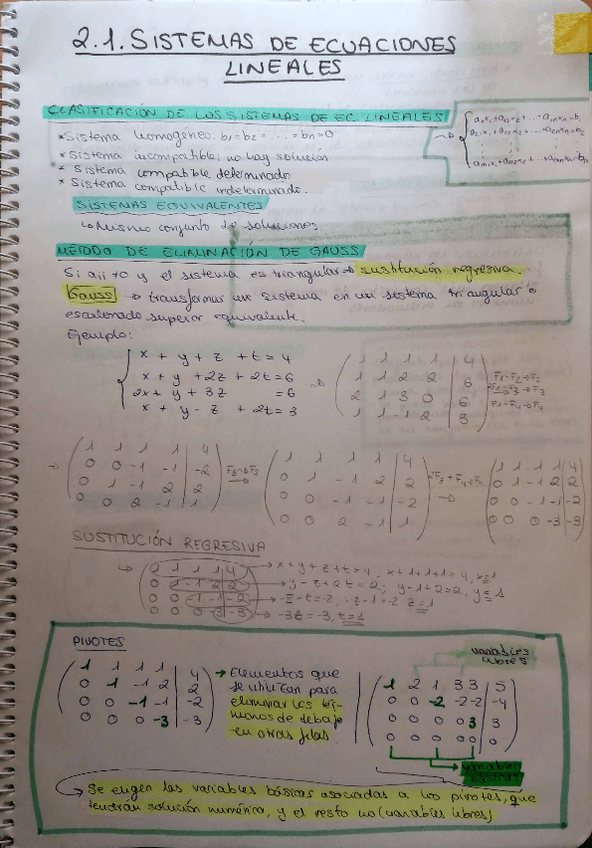 2.1. SISTEMAS DE ECUACIONES
LINEALES
CLASIFICACIÓN DE LOS SISTEMAS DE EC. LINEALES
* Sistema homogéneo: b₁=b₂= ... =bn=0
* Sistema incompatible: no hay solución
* Sistema compatible determinado
* Sistema compatible indeterminado.
SISTEMAS EQUIVALENTES
↳ Mismo conjunto de soluciones
MÉTODO DE ELIMINACIÓN DE GAUSS
y el sistema es triangular → sustitución regresiva.
Gauss → transformar un sistema en un sistema triangular o
escalonado superior equivalente.
Ejemplo:
x + y + z + t = 4
x + y + 2z + 2t = 6
2x + y + 3z = 6
x + y - z + 2t = 3
1 1 1 1 | 4
1 1 2 2 | 6
2 1 3 0 | 6
1 1 -1 2 | 3
1 1 1 1 | 4
0 0 -1 -1 | -2
0 1 -1 2 | 2
0 0 2 -1 | 1
1 1 1 1 | 4
0 1 -1 2 | 2
0 0 -1 -1 | -2
0 0 2 -1 | 1
1 1 1 1 | 4
0 1 -1 2 | 2
0 0 -1 -1 | -2
0 0 0 -3 | -3
SUSTITUCIÓN REGRESIVA
→ x + y + z + t = 4, x+1+1+1=4, x=1
→ y - z + 2t = 2; y-1+2=2, y=1
→ -z-t=-2, -z-1=-2 z=1
→ -3t=-3, t=1
PIVOTES
1 1 1 1 | 4
0 1 -1 2 | 2
0 0 -1 -1 | -2
0 0 0 -3 | -3
→ Elementos que
se utilizan para
eliminar los tér-
minos de debajo
en otras filas.
variables
libres
1 2 1 3 3 | 5
0 0 -2 -2 -2 | -4
0 0 0 0 3 | 3
0 0 0 0 0 | 0
variables
básicas
Se eligen las variables básicas asociadas a los pivotes, que
tendrán solución numérica, y el resto no (variables libres)